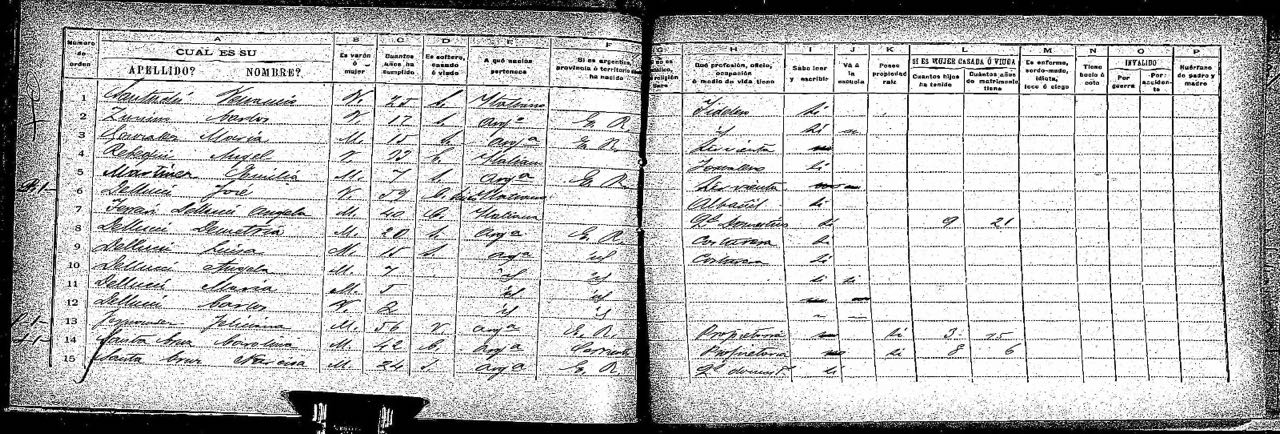 Número de orden
A
CUAL ES SU
APELLIDO? NOMBRE?
B
Es varón ó mujer
C
Cuantos años ha cumplido
D
Es soltero, casado ó viudo
E
A qué nación pertenece
F
Si es argentino, provincia ó territorio ha nacido
G
H
Qué profesión, oficio, ocupación ó medio de vida tiene
I
Sabe leer y escribir
J
Vá á la escuela
K
Posee propiedad raíz
L
SI ES MUJER CASADA Ó VIUDA
Cuantos hijos ha tenido
Cuántos años de matrimonio tiene
M
Es enfermo, sordo-mudo, idiota, loco ó ciego
N
Tiene bocio ó coto
O
INVÁLIDO
Por guerra
Por accidente
P
Huérfano de padre y madre
1 V. 25 s. Italiano si
2 Carlos V. 17 s. argª E. R. id si
3 María M. 15 s. argª E. R. Sirvienta
4 Angel V. 33 Italiano Jornalero si
5 Martinez Emilia M. 7 s. argª E. R. Sirvienta
6 Dellucci José V. 59 C. Italiano Albañil si
7 Dellucci Angela M. 40 C. Italiana 9 21
8 Dellucci Demetria M. 20 s. argª E. R. Costurera si
9 Dellucci Luisa M. 15 s. argª id Costurera si
10 Dellucci Angela M. 7 id id si si
11 Dellucci María M. 5 id id
12 Dellucci Carlos V. 2 id id
13 M. 56 V. argª E. R. Propietaria si 3 15
14 Santa Cruz Carolina M. 42 C. argª Corrientes Propietaria si 8 6
15 Santa Cruz Narcisa M. 24 s. argª E. R. si